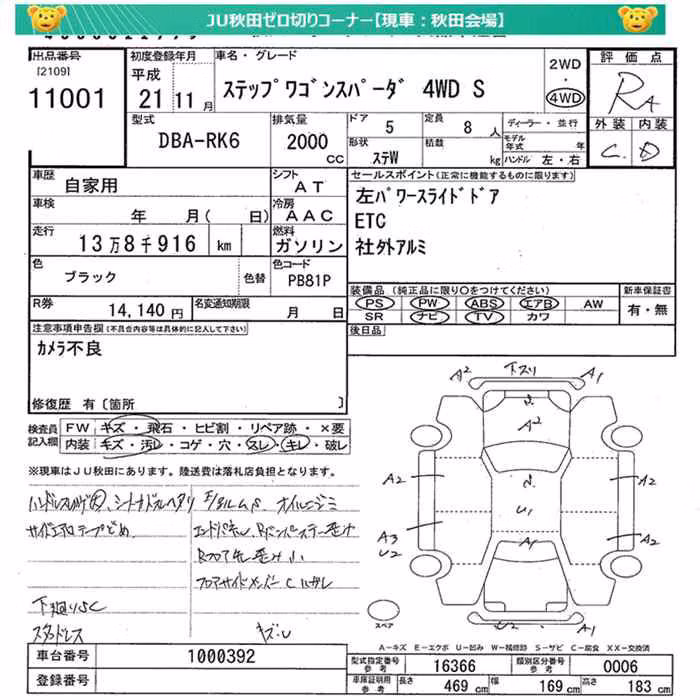 JU秋田ゼロ切りコーナー【現車：秋田会場】
出品番号
[2109]
11001
初度登録年月
平成
21 11月
車名・グレード
ｽﾃｯﾌﾟﾜｺﾞﾝｽﾊﾟｰﾀﾞ 4WD S
2WD
・
4WD
評価点
RA
外装 内装
C D
型式
DBA-RK6
排気量
2000
CC
ドア
5
定員
8 人
ディーラー・並行
モデル年式 年
形状
ｽﾃW
積載
kg
ハンドル 左・右
車歴
自家用
シフト
AT
車検
年 月( 日)
冷房
AAC
走行
13万8千916 km
燃料
ガソリン
色
ブラック
色替
色コード
PB81P
R券
14,140円
名変通知期限
月 日
セールスポイント(正常に機能するものに限ります)
左ﾊﾟﾜｰｽﾗｲﾄﾞﾄﾞｱ
ETC
社外ｱﾙﾐ
装備品 (純正品に限り○をつけてください)
PS PW ABS エアB AW
SR ナビ TV カワ
新車保証書
有・無
後日品
注意事項申告欄(不具合内容等は具体的に記入して下さい)
ｶﾒﾗ不良
修復歴 有〔箇所 〕
検査員記入欄
FW キズ・飛石・ヒビ割・リペア跡・×要
内装 キズ・汚レ・コゲ・穴・スレ・キレ・破レ
※現車はJU秋田にあります。陸送費は落札店負担となります。
オイルニジミ
サイドエアロテープどめ
下廻りSC
スタッドレス
キズU
A2 下スリ A1
A2
A2
A2
U1
A3
U2
A2
A1
U2 A1
スペア
A－キズ E－エクボ U－凹み W－補修跡 S－サビ C－腐食 XX－交換済
車台番号
1000392
登録番号
型式指定番号
参考
16366
類別区分番号
参考
0006
車庫証明用
参考
長さ
469 cm
幅
169 cm
高さ
183 cm